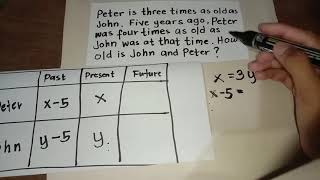 Peter is three times as old as
John. Five years ago, Peter
was four times as old as
John was at that time. How
old is John and Peter?
Past Present Future
Peter x-5 x
John y-5 y
x = 3y
x-5 =